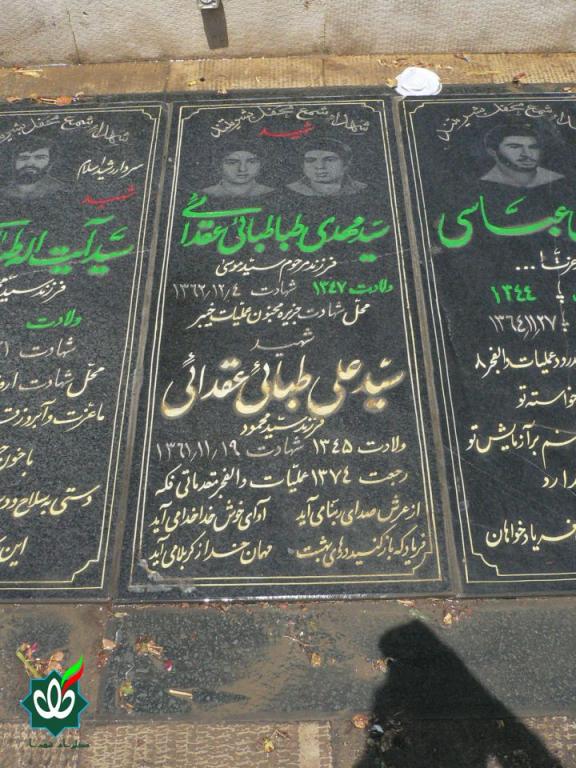 شهدا در شمع محفل بشریتند
شهید
سید مهدی طباطبائی عقدائی
فرزند مرحوم سید موسی
ولادت ۱۳۴۷ شهادت ۱۳۶۲/۱۲/۴
محل شهادت جزیره مجنون عملیات خیبر
شهید
سید علی طبائی عقدائی
فرزند سید محمود
ولادت ۱۳۴۵ شهادت ۱۳۶۱/۱۱/۱۹
رجعت ۱۳۷۴ عملیات والفجر مقدماتی فکه
از عرش صدای ربنا می آید آوای خوش خدا خدا می آید
فریاد که باز کنید درهای بهشت مهمان خدا از کربلا می آید
سردار رشید اسلام
شهید
سید آیت اله
فرزند سید
ولادت
شهادت
محل شهادت
ما عزت و آبرو
با خون
دستی به سلاح و
این
عباسی
۱۳۴۴
۱۳۶۴/۱۱/۲۷
عملیات والفجر ۸
خواسته تو
بر آزمایش تو
دارد
فریاد خواهان